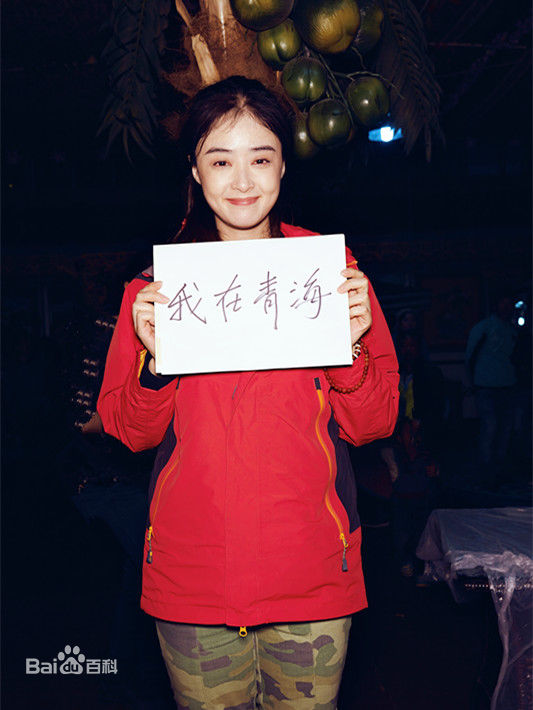 我在青海
Bai du 百科